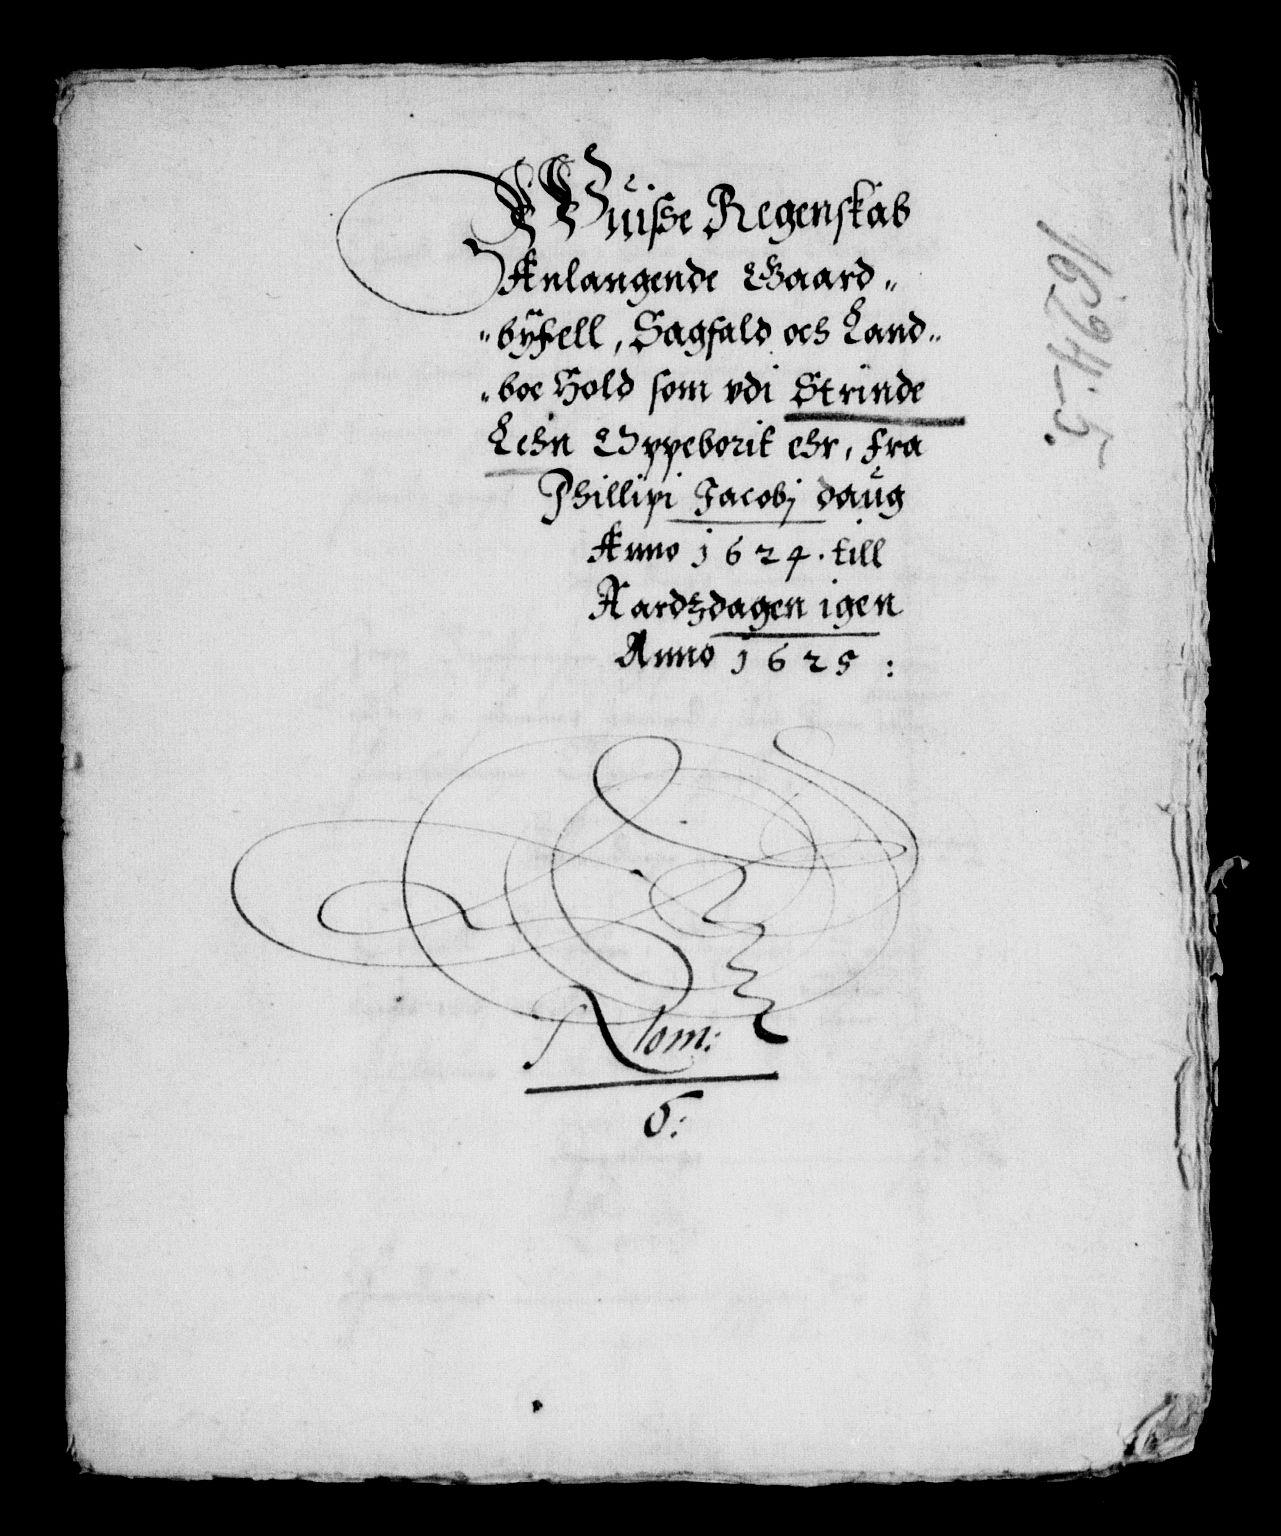 Wuisse Regenskab
Anlangende Gaard„
„byfell, Sagfald och Land„
„boe Hold som vdi Strinde
Lehn Oppeborit ehr, fra
Phillipi Jacobj daug
Anno 1624. till
Aardzdagen igen
Anno 1625:
N lom:
6:
1624-5.